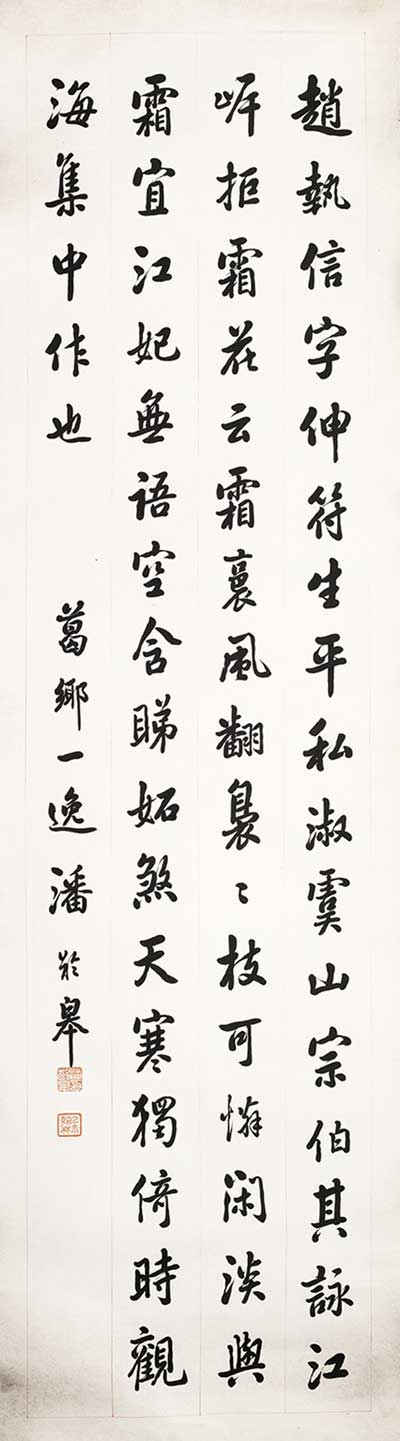 趙執信字伸符生平私淑虞山宗伯其詠江
岸拒霜花云霜裏風翻裊〻枝可憐閑淡與
霜宜江妃無語空含睇妬煞天寒獨倚時觀
海集中作也
葛鄉一逸潘齡皋